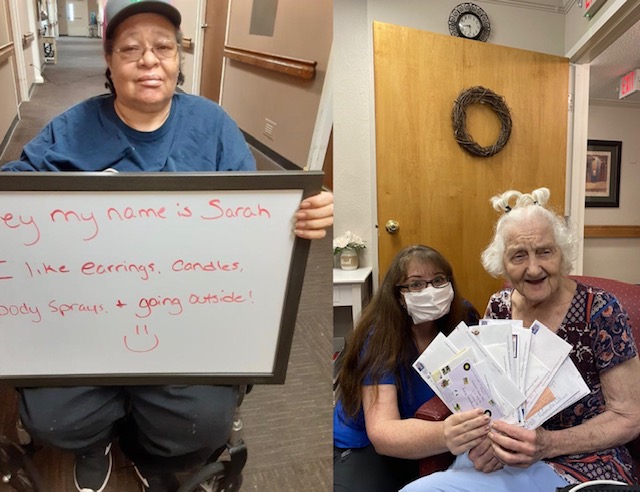 ey my name is Sarah
I like earrings, candles,
body sprays, + going outside!